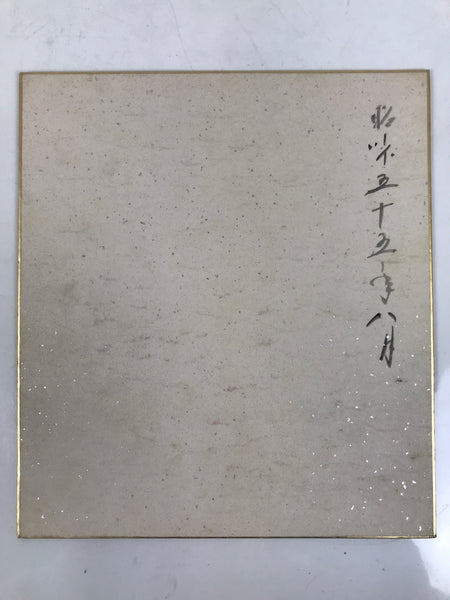 昭和五十五年八月